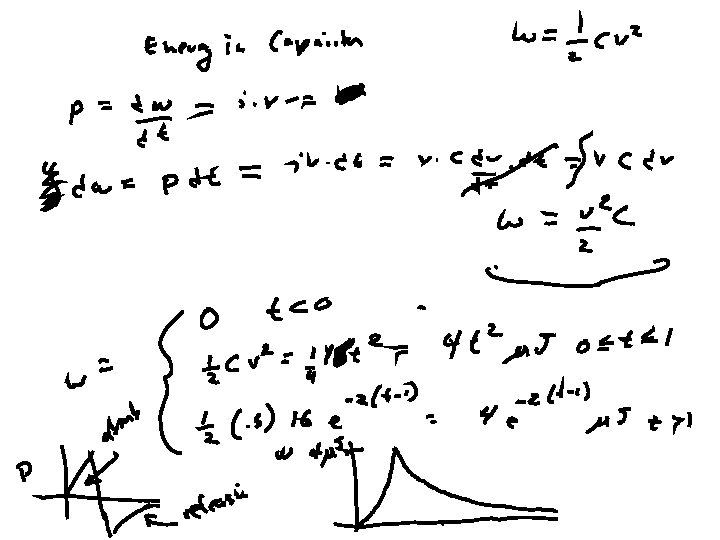 Energy in Capacitor
w = 1/2 C v²
P = dw/dt = i.v =
dw = P dt = iv.dt = v. C dv/dt . dt = ∫ v C dv
w = v²/2 C
w = { 0 t<0
1/2 C v² = 1/4 16 t² = 4t² μJ 0≤t≤1
1/2 (.5) 16 e^-2(t-1) = 4 e^-2(t-1) μJ t>1
P
w